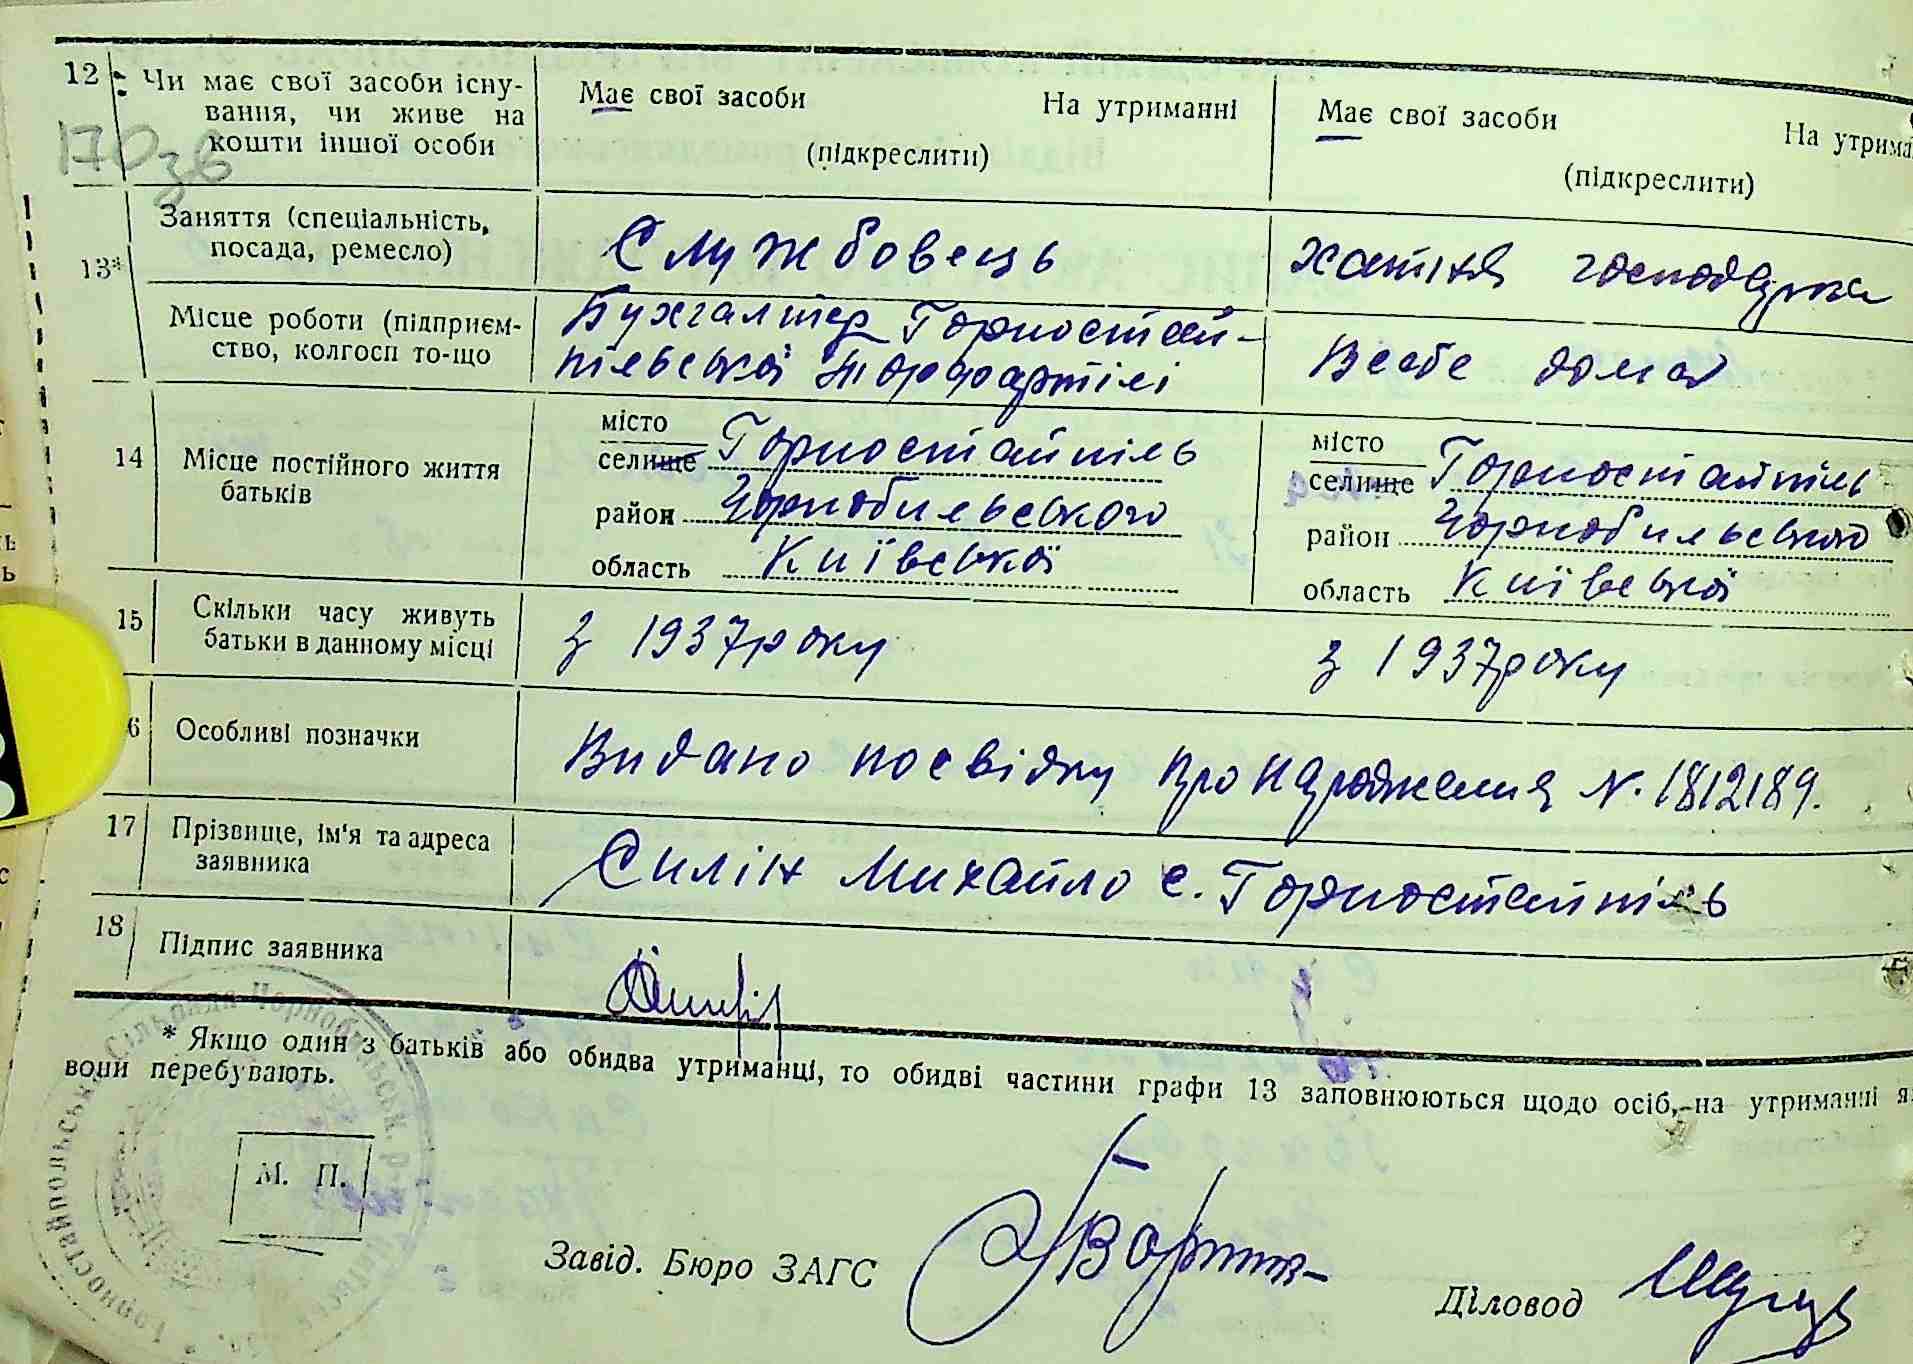 12 Чи має свої засоби існу-
вання, чи живе на
кошти іншої особи
Має свої засоби На утриманні
(підкреслити)
Має свої засоби На утрима
(підкреслити)
170 зв
13* Заняття (спеціальність,
посада, ремесло)
Службовець
хатня господарка
Місце роботи (підприєм-
ство, колгосп то-що
Бухгалтер Горностай-
пільської торфартілі
Веабе дома
14 Місце постійного життя
батьків
місто
селище Горностайпіль
район Чорнобильського
область Київської
місто
селище Горностайпіль
район Чорнобильського
область Київської
15 Скільки часу живуть
батьки в данному місці
з 1937 року
з 1937 року
6 Особливі позначки
Видано посвідку про народження N. 1812189.
17 Прізвище, ім'я та адреса
заявника
Силін Михайло с. Горностайпіль
18 Підпис заявника
* Якщо один з батьків або обидва утриманці, то обидві частини графи 13 заповнюються щодо осіб, на утриманні я
вони перебувають.
М. П.
Горностайпольська Сільрада Чорнобильськ. р.
Завід. Бюро ЗАГС
Діловод